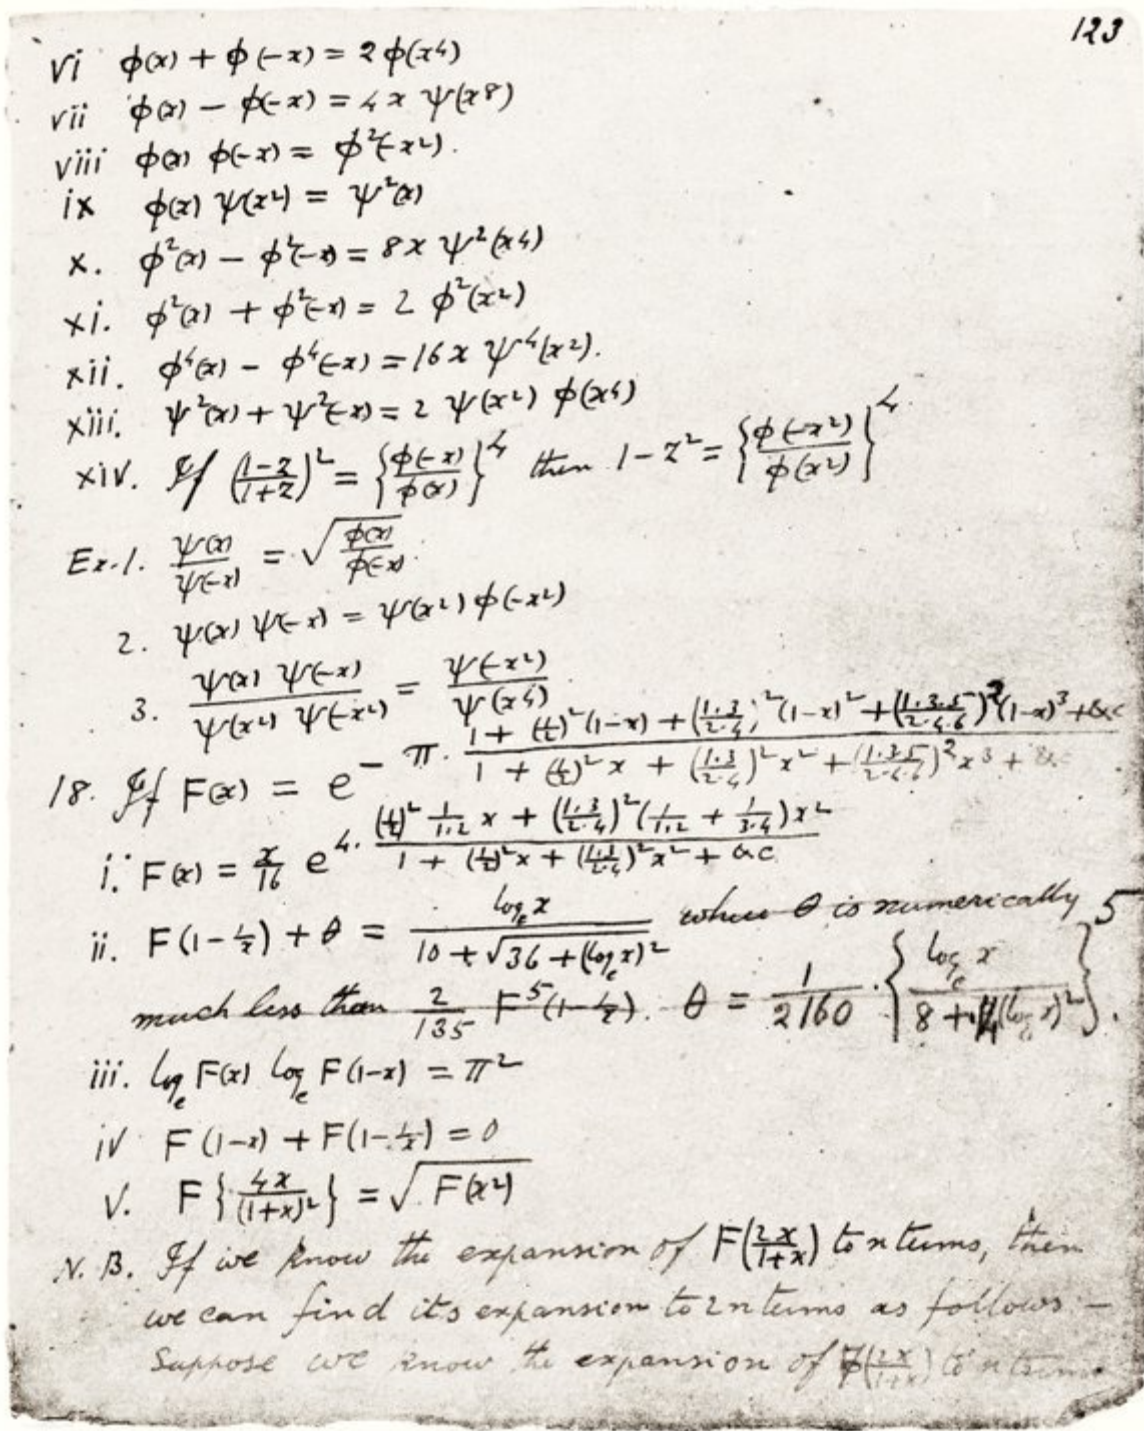 123
vi φ(x) + φ(-x) = 2 φ(x⁴)
vii φ(x) - φ(-x) = 4x ψ(x⁸)
viii φ(x) φ(-x) = φ²(-x²).
ix φ(x) ψ(x²) = ψ²(x)
x. φ²(x) - φ²(-x) = 8x ψ²(x⁴)
xi. φ²(x) + φ²(-x) = 2 φ²(x²)
xii. φ⁴(x) - φ⁴(-x) = 16x ψ⁴(x²).
xiii. ψ²(x) + ψ²(-x) = 2 ψ(x²) φ(x⁴)
xiv. If ((1-z)/(1+z))² = {φ(-x)/φ(x)}⁴ then 1-z² = {φ(-x²)/φ(x²)}⁴
Ex.1. ψ(x)/ψ(-x) = √(φ(x)/φ(-x)).
2. ψ(x) ψ(-x) = ψ(x²) φ(-x²)
3. (ψ(x) ψ(-x))/(ψ(x²) ψ(-x²)) = ψ(-x²)/ψ(x⁴)
18. If F(x) = e^(-π · (1 + (1/2)²(1-x) + (1·3/2·4)²(1-x)² + (1·3·5/2·4·6)²(1-x)³ + &c)/(1 + (1/2)²x + (1·3/2·4)²x² + (1·3·5/2·4·6)²x³ + &c))
i. F(x) = x/16 e^(4 · ((1/2)² 1/1·2 x + (1·3/2·4)²(1/1·2 + 1/3·4)x²)/(1 + (1/2)²x + (1·3/2·4)²x² + &c))
ii. F(1-1/x) + θ = logₑx/(10 + √(36 + (logₑx)²)) where θ is numerically
much less than 2/135 F⁵(1-1/x). θ = 1/2160 · {logₑx/(8 + (logₑx)²)}⁵.
iii. logₑ F(x) logₑ F(1-x) = π²
iv F(1-x) + F(1-1/x) = 0
v. F{4x/(1+x)²} = √F(x²)
N.B. If we know the expansion of F(2x/(1+x)) to n terms, then
we can find its expansion to 2n terms as follows —
Suppose we know the expansion of (2x/(1+x)) to n terms